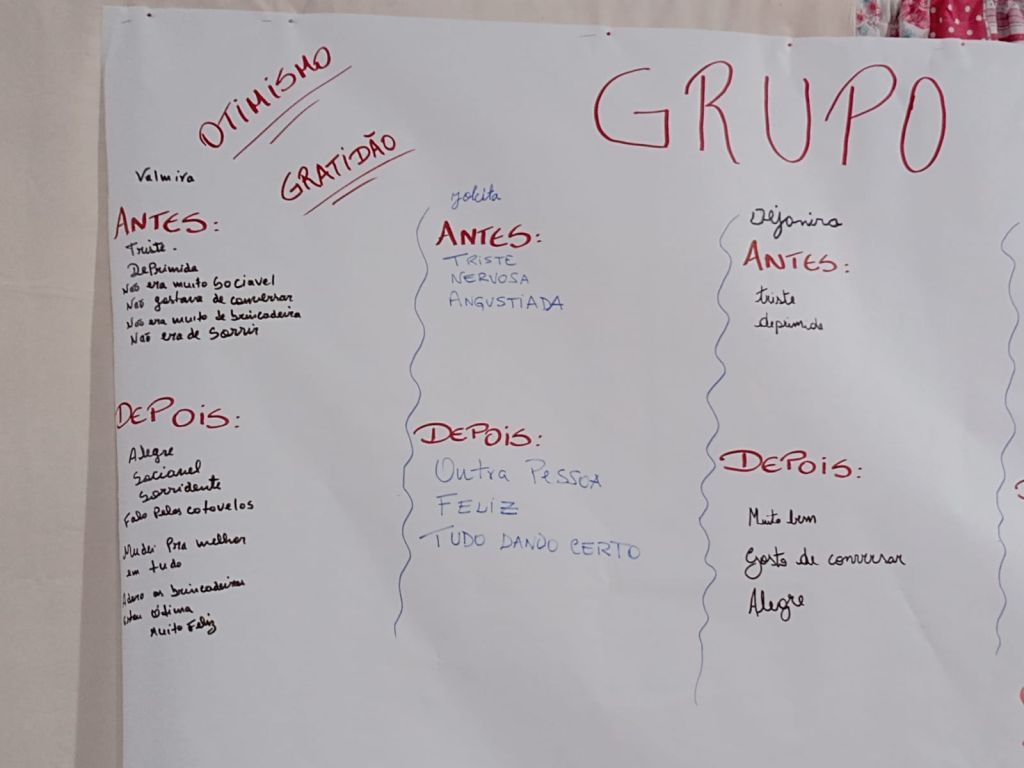 OTIMISMO
GRATIDÃO
GRUPO
Valmira
ANTES:
Triste.
DePrimida
Não era muito Sociavel
Não gostava de conversar
Não era muito de brincadeira
Não era de Sorrir
DEPOIS:
Alegre
Sociavel
Sorridente
Falo Pelos cotovelos
Mudei Pra melhor
em tudo
Adoro as brincadeiras
estou Otima
Muito Feliz
ANTES:
TRISTE
NERVOSA
ANGUSTIADA
DEPOIS:
Outra PESSOA
FELIZ
TUDO DANDO CERTO
Dejanira
ANTES:
triste
deprimida
DEPOIS:
Muito bem
Gosto de conversar
Alegre